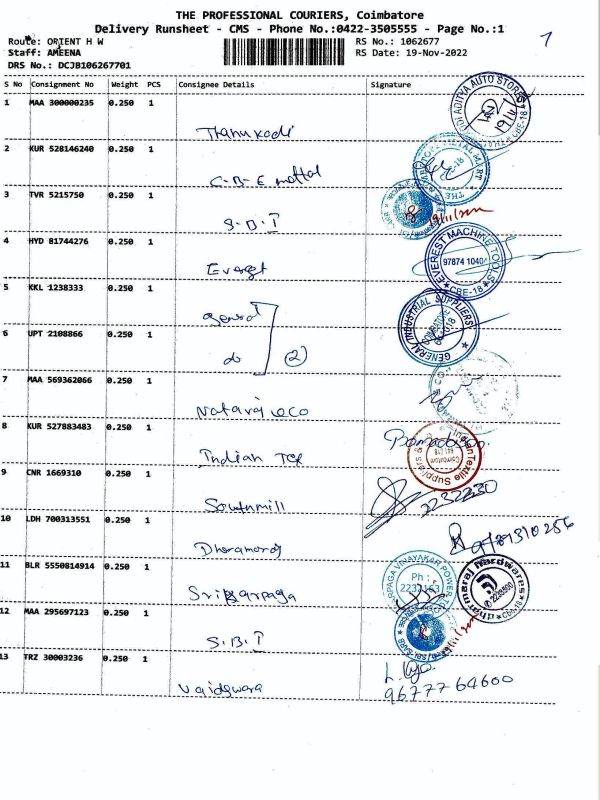 THE PROFESSIONAL COURIERS, Coimbatore
Delivery Runsheet - CMS - Phone No.:0422-3505555 - Page No.:1
Route: ORIENT H W
RS No.: 1062677
1
Staff: AMEENA
RS Date: 19-Nov-2022
DRS No.: DCJB106267701
S No Consignment No Weight PCS Consignee Details Signature
1 MAA 300000235 0.250 1
Thanukodi
ADITYA AUTO STORES
2 KUR 528146240 0.250 1
C-B-E mettal
METAL MART
3 TVR 5215750 0.250 1
S.B.I
4 HYD 81744276 0.250 1
Everest
EVEREST MACHING TOOLS
97874 1040
CBE-18
5 KKL 1238333 0.250 1
General
GENERAL INDUSTRIAL SUPPLIERS
6 UPT 2108866 0.250 1
do (2)
7 MAA 569362066 0.250 1
Nataraj eco
8 KUR 527883483 0.250 1
Indian Tex
Indian Textile Suppliers
9 CNR 1669310 0.250 1
Southmill
2232230
10 LDH 700313551 0.250 1
Dharamaraj
11 BLR 5550814914 0.250 1
Sri Karpaga
VINAYAKAR POWER
Ph :
2232163
dharmaraj hardwares
12 MAA 295697123 0.250 1
S.B.I
13 TRZ 30003236 0.250 1
Vaideswara
9677764600